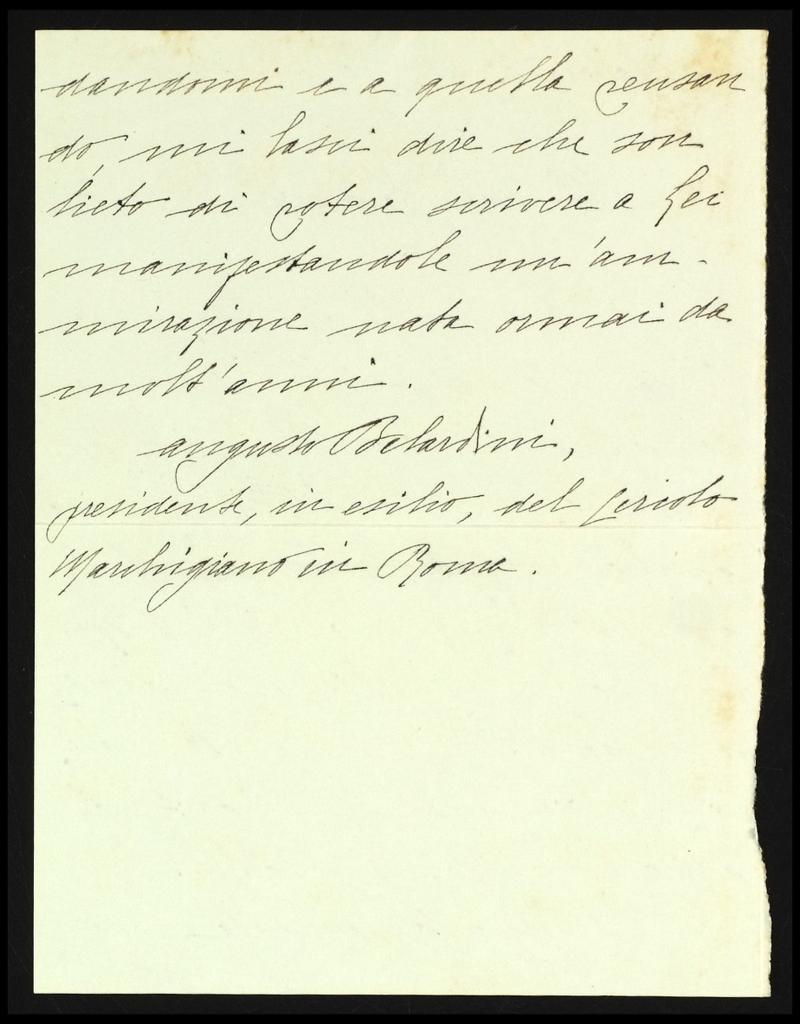 dandomi e a quella pensan
do, mi lasci dire che son
lieto di potere scrivere a Lei
manifestandole un'am-
mirazione nata ormai da
molt'anni.
Augusto Belardini,
presidente, in esilio, del Circolo
Marchigiano in Roma.